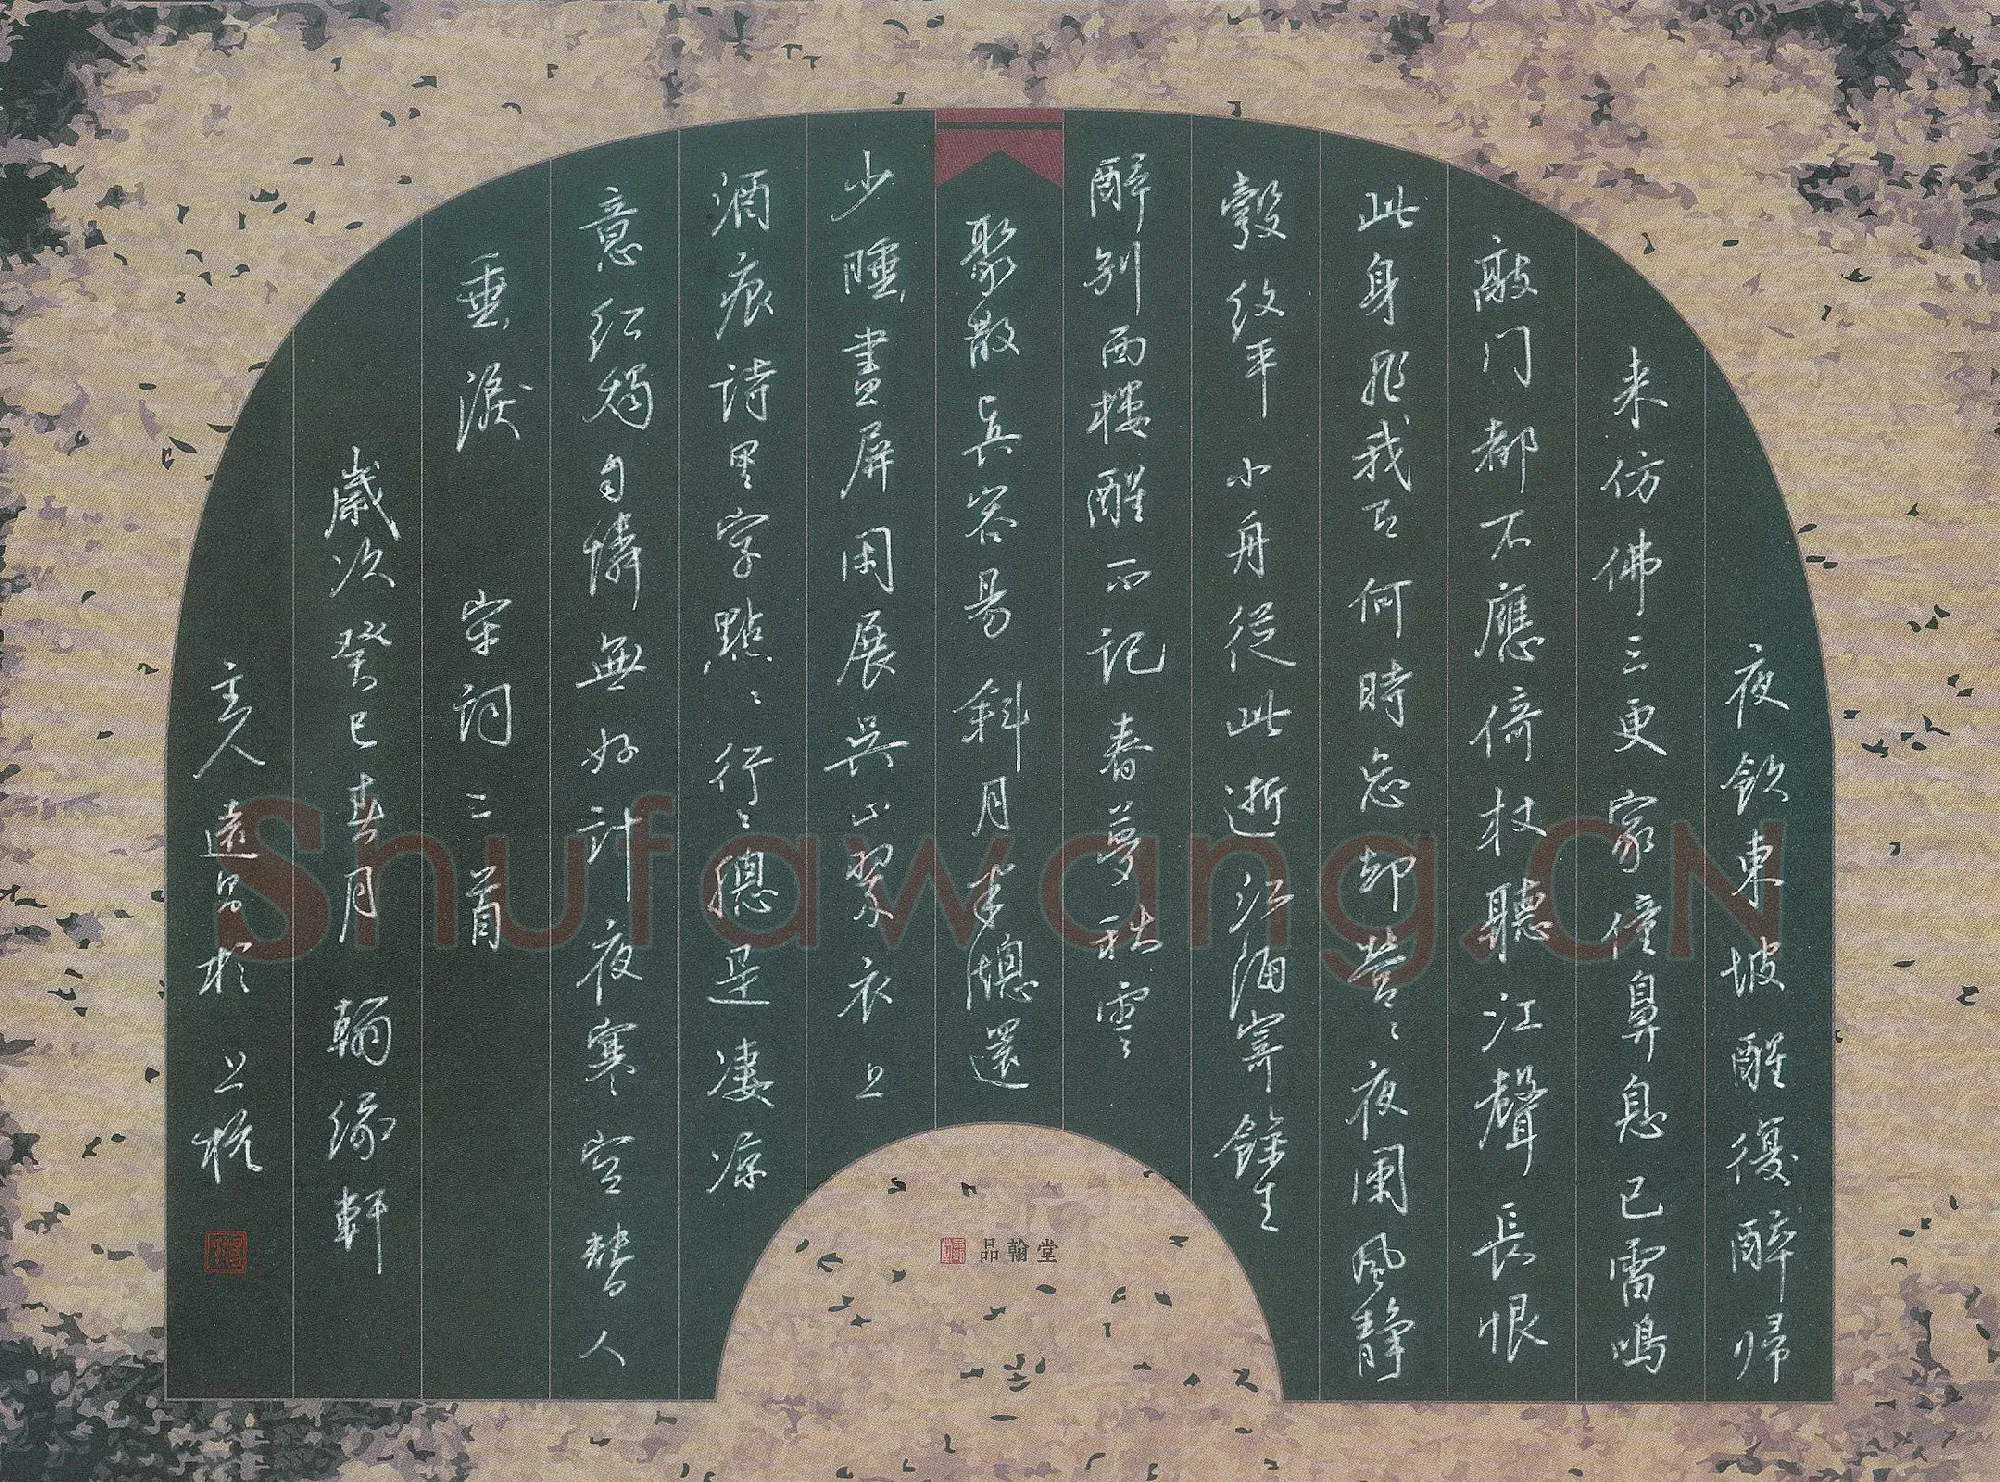 夜飲東坡醒復醉帰
来仿佛三更家僮鼻息已雷鳴
敲门都不應倚杖聽江聲長恨
此身非我有何時忘却營〻夜闌風静
縠纹平小舟從此逝江海寄餘生
醉别西樓醒不記春夢秋雲
聚散真容易斜月半牕還
少睡畫屏閑展吳山翠衣上
酒痕诗里字點〻行〻總是凄凉
意红燭自憐無好計夜寒空替人
垂淚 宋词二首
歲次癸巳春月翰缘軒
主人遠昌於上杭
品翰堂
Shufawang.CN